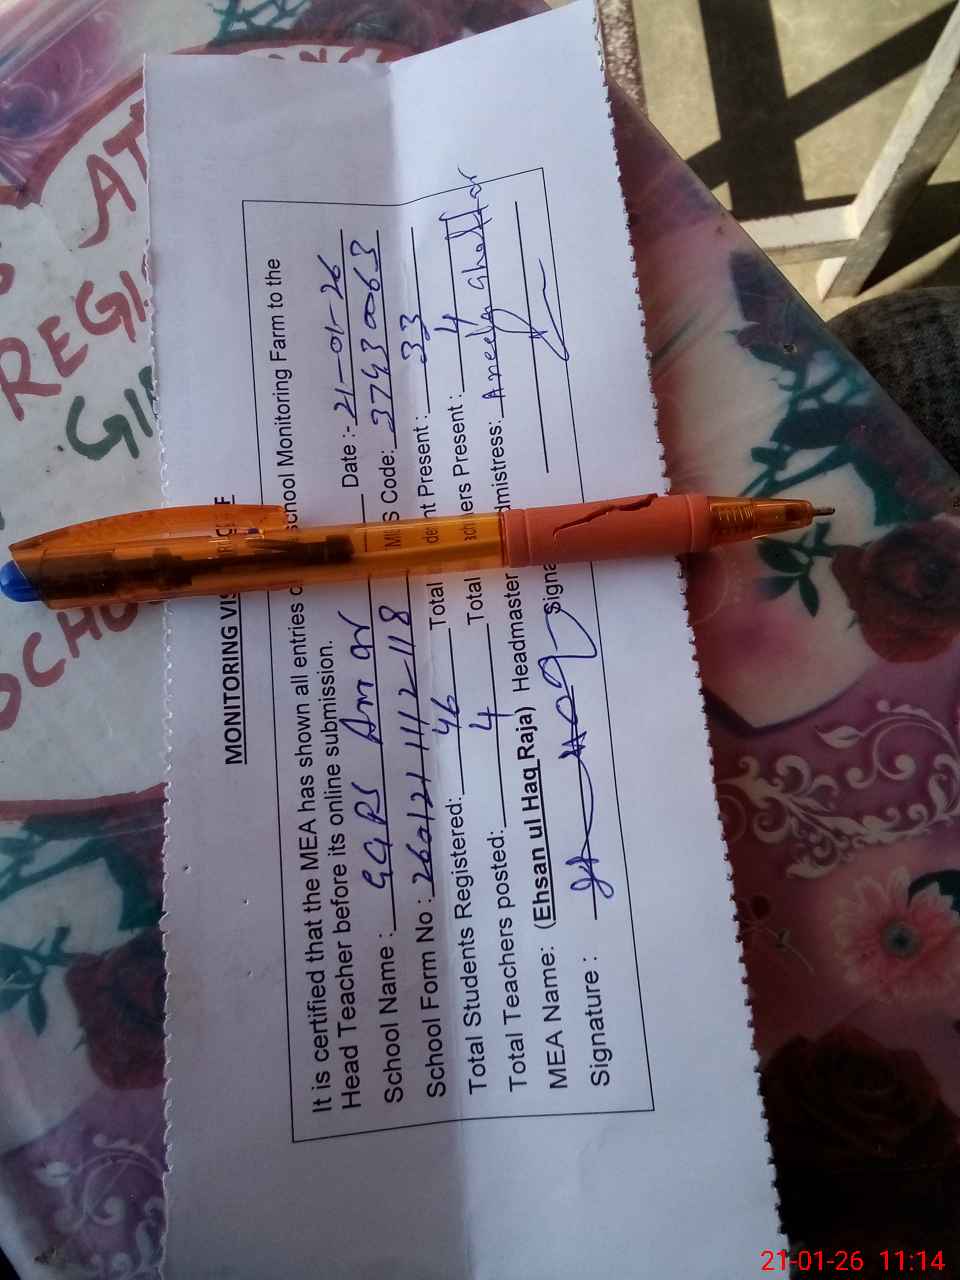 MONITORING VIS
It is certified that the MEA has shown all entries school Monitoring Farm to the
Head Teacher before its online submission.
School Name : GGPS Date :- 21-01-26
School Form No : Code: 37430063
Total Students Registered: 46 Total Present : 33
Total Teachers posted: 4 Total Present : 4
MEA Name: (Ehsan ul Haq Raja) Headmaster Ghaffar
Signature :
REGIS
SCHO
21-01-26 11:14